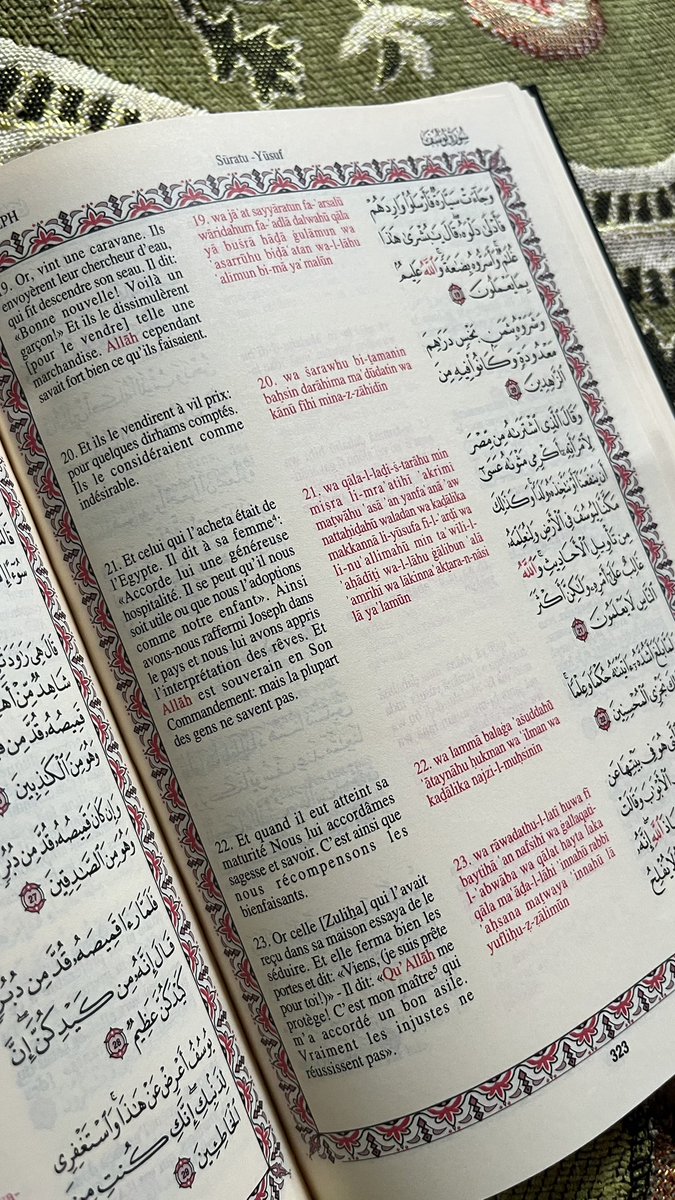 PH
Sūratu -Yūsuf
سورة يوسف
19. Or, vint une caravane. Ils
envoyèrent leur chercheur d'eau,
qui fit descendre son seau. Il dit:
«Bonne nouvelle! Voilà un
garçon!» Et ils le dissimulèrent
[pour le vendre] telle une
marchandise. Allāh cependant
savait fort bien ce qu'ils faisaient.
19. wa jā'at sayyāratun fa-'arsalū
wāridahum fa-'adlā dalwahū qāla
yā bušrā hāḏā ġulāmun wa
'asarrūhu biḍā'atan wa-l-lāhu
'alīmun bi-mā ya'malūn
وَجَآءَتْ سَيَّارَةٌ فَأَرْسَلُوا۟ وَارِدَهُمْ
فَأَدْلَىٰ دَلْوَهُۥ قَالَ يَٰبُشْرَىٰ هَٰذَا
غُلَٰمٌ وَأَسَرُّوهُ بِضَٰعَةً وَٱللَّهُ عَلِيمٌۢ
بِمَا يَعْمَلُونَ 19
20. Et ils le vendirent à vil prix:
pour quelques dirhams comptés.
Ils le considéraient comme
indésirable.
20. wa šarawhu bi-ṯamanin
baḫsin darāhima ma'dūdatin wa
kānū fīhi mina-z-zāhidīn
وَشَرَوْهُ بِثَمَنٍۭ بَخْسٍ دَرَٰهِمَ
مَعْدُودَةٍ وَكَانُوا۟ فِيهِ مِنَ
ٱلزَّٰهِدِينَ 20
21. Et celui qui l'acheta était de
l'Egypte. Il dit à sa femme⁴:
«Accorde lui une généreuse
hospitalité. Il se peut qu'il nous
soit utile ou que nous l'adoptions
comme notre enfant». Ainsi
avons-nous raffermi Joseph dans
le pays et nous lui avons appris
l'interprétation des rêves. Et
Allāh est souverain en Son
Commandement: mais la plupart
des gens ne savent pas.
21. wa qāla-l-laḏi-š-tarāhu min
miṣra li-mra'atihī 'akrimī
maṯwāhu 'asā 'an yanfa'anā 'aw
nattaḫiḏahū waladan wa kaḏālika
makkannā li-yūsufa fi-l-'arḍi wa
li-nu'allimahū min ta'wīli-l-
'aḥādīṯi wa-l-lāhu ġālibun 'alā
amrihī wa lākinna akṯara-n-nāsi
lā ya'lamūn
وَقَالَ ٱلَّذِى ٱشْتَرَىٰهُ مِن مِّصْرَ
لِٱمْرَأَتِهِۦٓ أَكْرِمِى مَثْوَىٰهُ عَسَىٰٓ
أَن يَنفَعَنَآ أَوْ نَتَّخِذَهُۥ وَلَدًا وَكَذَٰلِكَ
مَكَّنَّا لِيُوسُفَ فِى ٱلْأَرْضِ وَلِنُعَلِّمَهُۥ
مِن تَأْوِيلِ ٱلْأَحَادِيثِ وَٱللَّهُ
غَالِبٌ عَلَىٰٓ أَمْرِهِۦ وَلَٰكِنَّ أَكْثَرَ
ٱلنَّاسِ لَا يَعْلَمُونَ 21
22. Et quand il eut atteint sa
maturité Nous lui accordâmes
sagesse et savoir. C'est ainsi que
nous récompensons les
bienfaisants.
22. wa lammā balaġa 'ašuddahū
'ātaynāhu ḥukman wa 'ilman wa
kaḏālika najzi-l-muḥsinīn
بَلَغَ أَشُدَّهُۥٓ ءَاتَيْنَٰهُ حُكْمًا وَعِلْمًا
نَجْزِى ٱلْمُحْسِنِينَ 22
23. Or celle [Zuliḫa] qui l'avait
reçu dans sa maison essaya de le
séduire. Et elle ferma bien les
portes et dit: «Viens, (je suis prête
pour toi!)» - Il dit: «Qu'Allāh me
protège! C'est mon maître⁵ qui
m'a accordé un bon asile.
Vraiment les injustes ne
réussissent pas».
23. wa rāwadathu-l-latī huwa fī
baytihā 'an nafsihī wa ġallaqati-
l-'abwāba wa qālat hayta laka
qāla ma'āḏa-l-lāhi 'innahū rabbī
'aḥsana maṯwāya 'innahū lā
yufliḥu-ẓ-ẓālimūn
هُوَ فِى بَيْتِهَا عَن
ٱلْأَبْوَٰبَ وَقَالَتْ
ٱللَّهِ إِنَّهُۥ
لَا يُفْلِحُ
323
قَالَ هِىَ رَٰوَدَتْ
شَاهِدٌ مِّنْ أَهْ
قَمِيصُهُۥ قُدَّ مِن قُ
وَهُوَ مِنَ ٱلْكَٰذِبِينَ
وَإِن كَانَ قَمِيصُهُۥ قُدَّ مِن دُبُرٍ
وَهُوَ مِنَ ٱلصَّٰدِقِينَ 27
فَلَمَّا رَءَا قَمِيصَهُۥ قُدَّ مِن دُبُرٍ
قَالَ إِنَّهُۥ مِن كَيْدِكُنَّ إِنَّ
كَيْدَكُنَّ عَظِيمٌ 28
يُوسُفُ أَعْرِضْ عَنْ هَٰذَا وَٱسْتَغْفِرِى
لِذَنۢبِكِ إِنَّكِ كُنتِ مِنَ
ٱلْخَاطِـِٔينَ 29